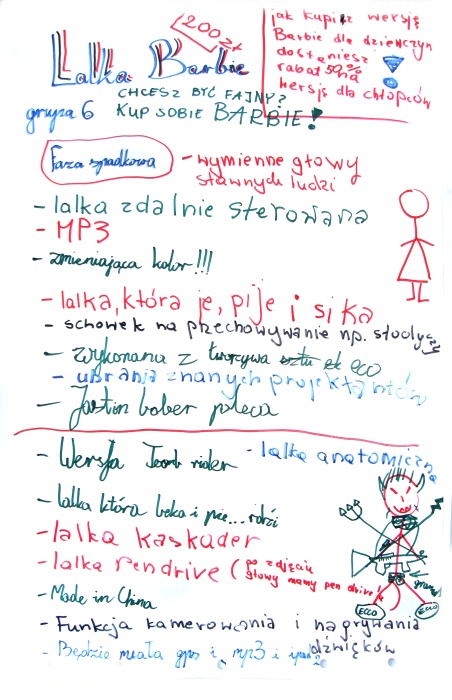 200 zł
Lalka Barbie
jak kupisz wersję
Barbie dla dziewczyn
dostaniesz
rabat 50% na
wersję dla chłopców
CHCESZ BYĆ FAJNY?
grupa 6 KUP SOBIE BARBIE!
Faza spadkowa
- wymienne głowy
sławnych ludzi
- lalka zdalnie sterowana
- MP3
- zmieniająca kolor!!!
- lalka, która je, pije i sika
- schowek na przechowywanie np. słodyczy
- wykonana z tworzywa eco
- ubrania znanych projektantów
- Jastin bober poleca
- Wersja rider
- lalka anatomiczna
- lalka która beka i pie... rdzi
- lalka kaskader
- lalka Pendrive (po zdjęciu
głowy mamy pen drive'a
- Made in China
- Funkcja kamerowania i nagrywania
dźwięków
- Będzie miała gps i mp3 i
ECCO
ECCO